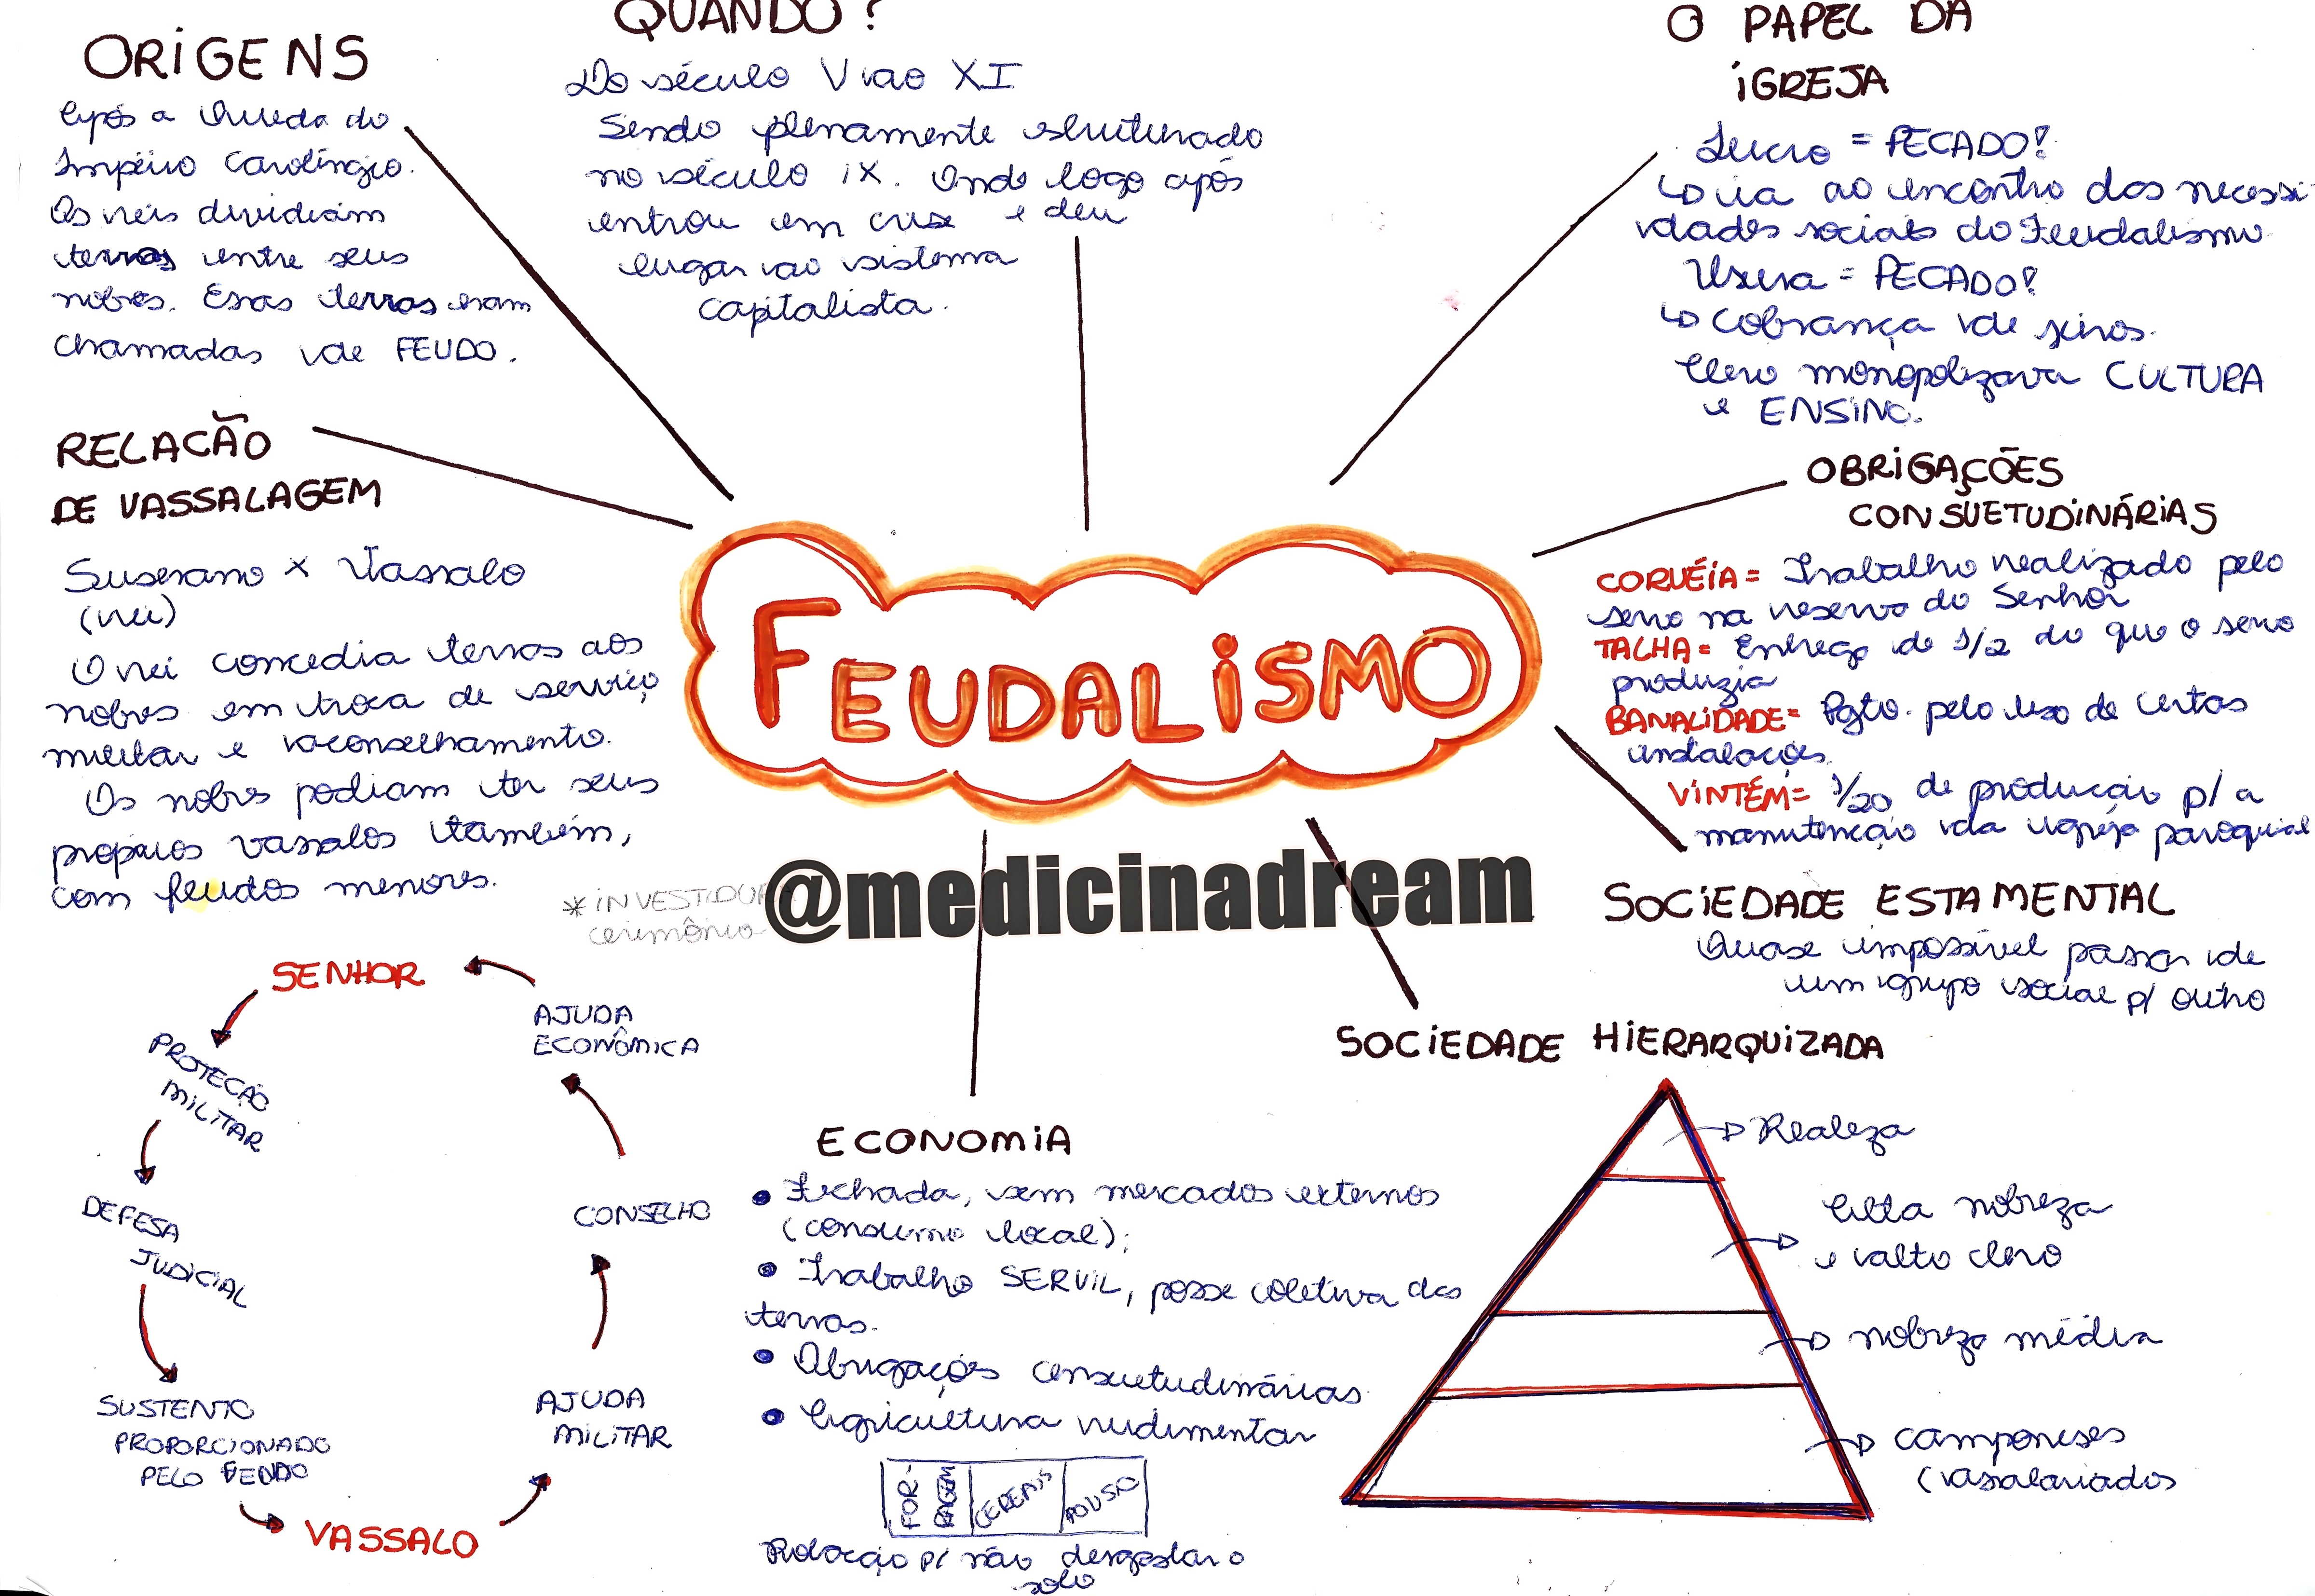 ORIGENS
Após a Queda do
Império Carolíngio.
Os reis dividiam
terras entre seus
nobres. Essas terras eram
chamadas de FEUDO.
QUANDO?
Do século V ao XI
Sendo plenamente estruturado
no século IX. Onde logo após
entrou em crise e deu
lugar ao sistema
capitalista.
O PAPEL DA
IGREJA
Lucro = PECADO!
↳ ia ao encontro das necessi-
dades sociais do Feudalismo
Usura = PECADO!
↳ cobrança de juros.
Clero monopolizava CULTURA
e ENSINO.
RELACÃO
DE VASSALAGEM
Suserano x Vassalo
(rei)
O rei concedia terras aos
nobres em troca de serviço
militar e aconselhamento.
Os nobres podiam ter seus
próprios vassalos também,
com feudos menores.
*INVESTIDURA
cerimônia
FEUDALISMO
@medicinadream
OBRIGAÇÕES
CONSUETUDINÁRIAS
CORVÉIA = Trabalho realizado pelo
servo na reserva do Senhor
TALHA = Entrega de 1/2 do que o servo
produzia
BANALIDADE = Pgto. pelo uso de certas
instalações
VINTÉM = 1/20 de produção p/ a
manutenção da igreja paroquial
SOCIEDADE ESTAMENTAL
Quase impossível passar de
um grupo social p/ outro
SENHOR
PROTEÇÃO
MILITAR
DEFESA
JUDICIAL
SUSTENTO
PROPORCIONADO
PELO FEUDO
VASSALO
AJUDA
MILITAR
CONSELHO
AJUDA
ECONÔMICA
ECONOMIA
• Fechada, sem mercados externos
(consumo local);
• Trabalho SERVIL, posse coletiva das
terras.
• Obrigações consuetudinárias
• Agricultura rudimentar
FOR-
RAGEM
CEREAIS
POUSIO
Rotação p/ não desgastar o
solo
SOCIEDADE HIERARQUIZADA
Realeza
Alta nobreza
e alto clero
nobreza média
camponeses
(assalariados